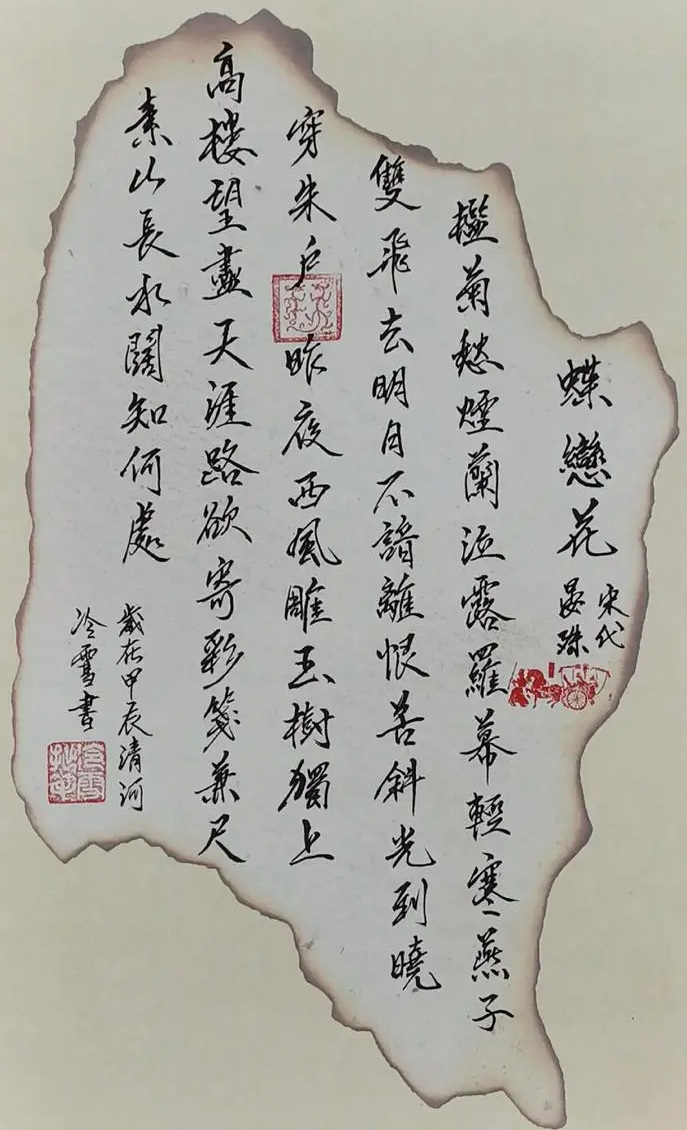 蝶戀花
宋代
晏殊
檻菊愁煙蘭泣露羅幕輕寒燕子
雙飛去明月不諳離恨苦斜光到曉
穿朱户昨夜西風雕玉樹獨上
高樓望盡天涯路欲寄彩箋兼尺
素山長水闊知何處
歲在甲辰清河
冷雪書